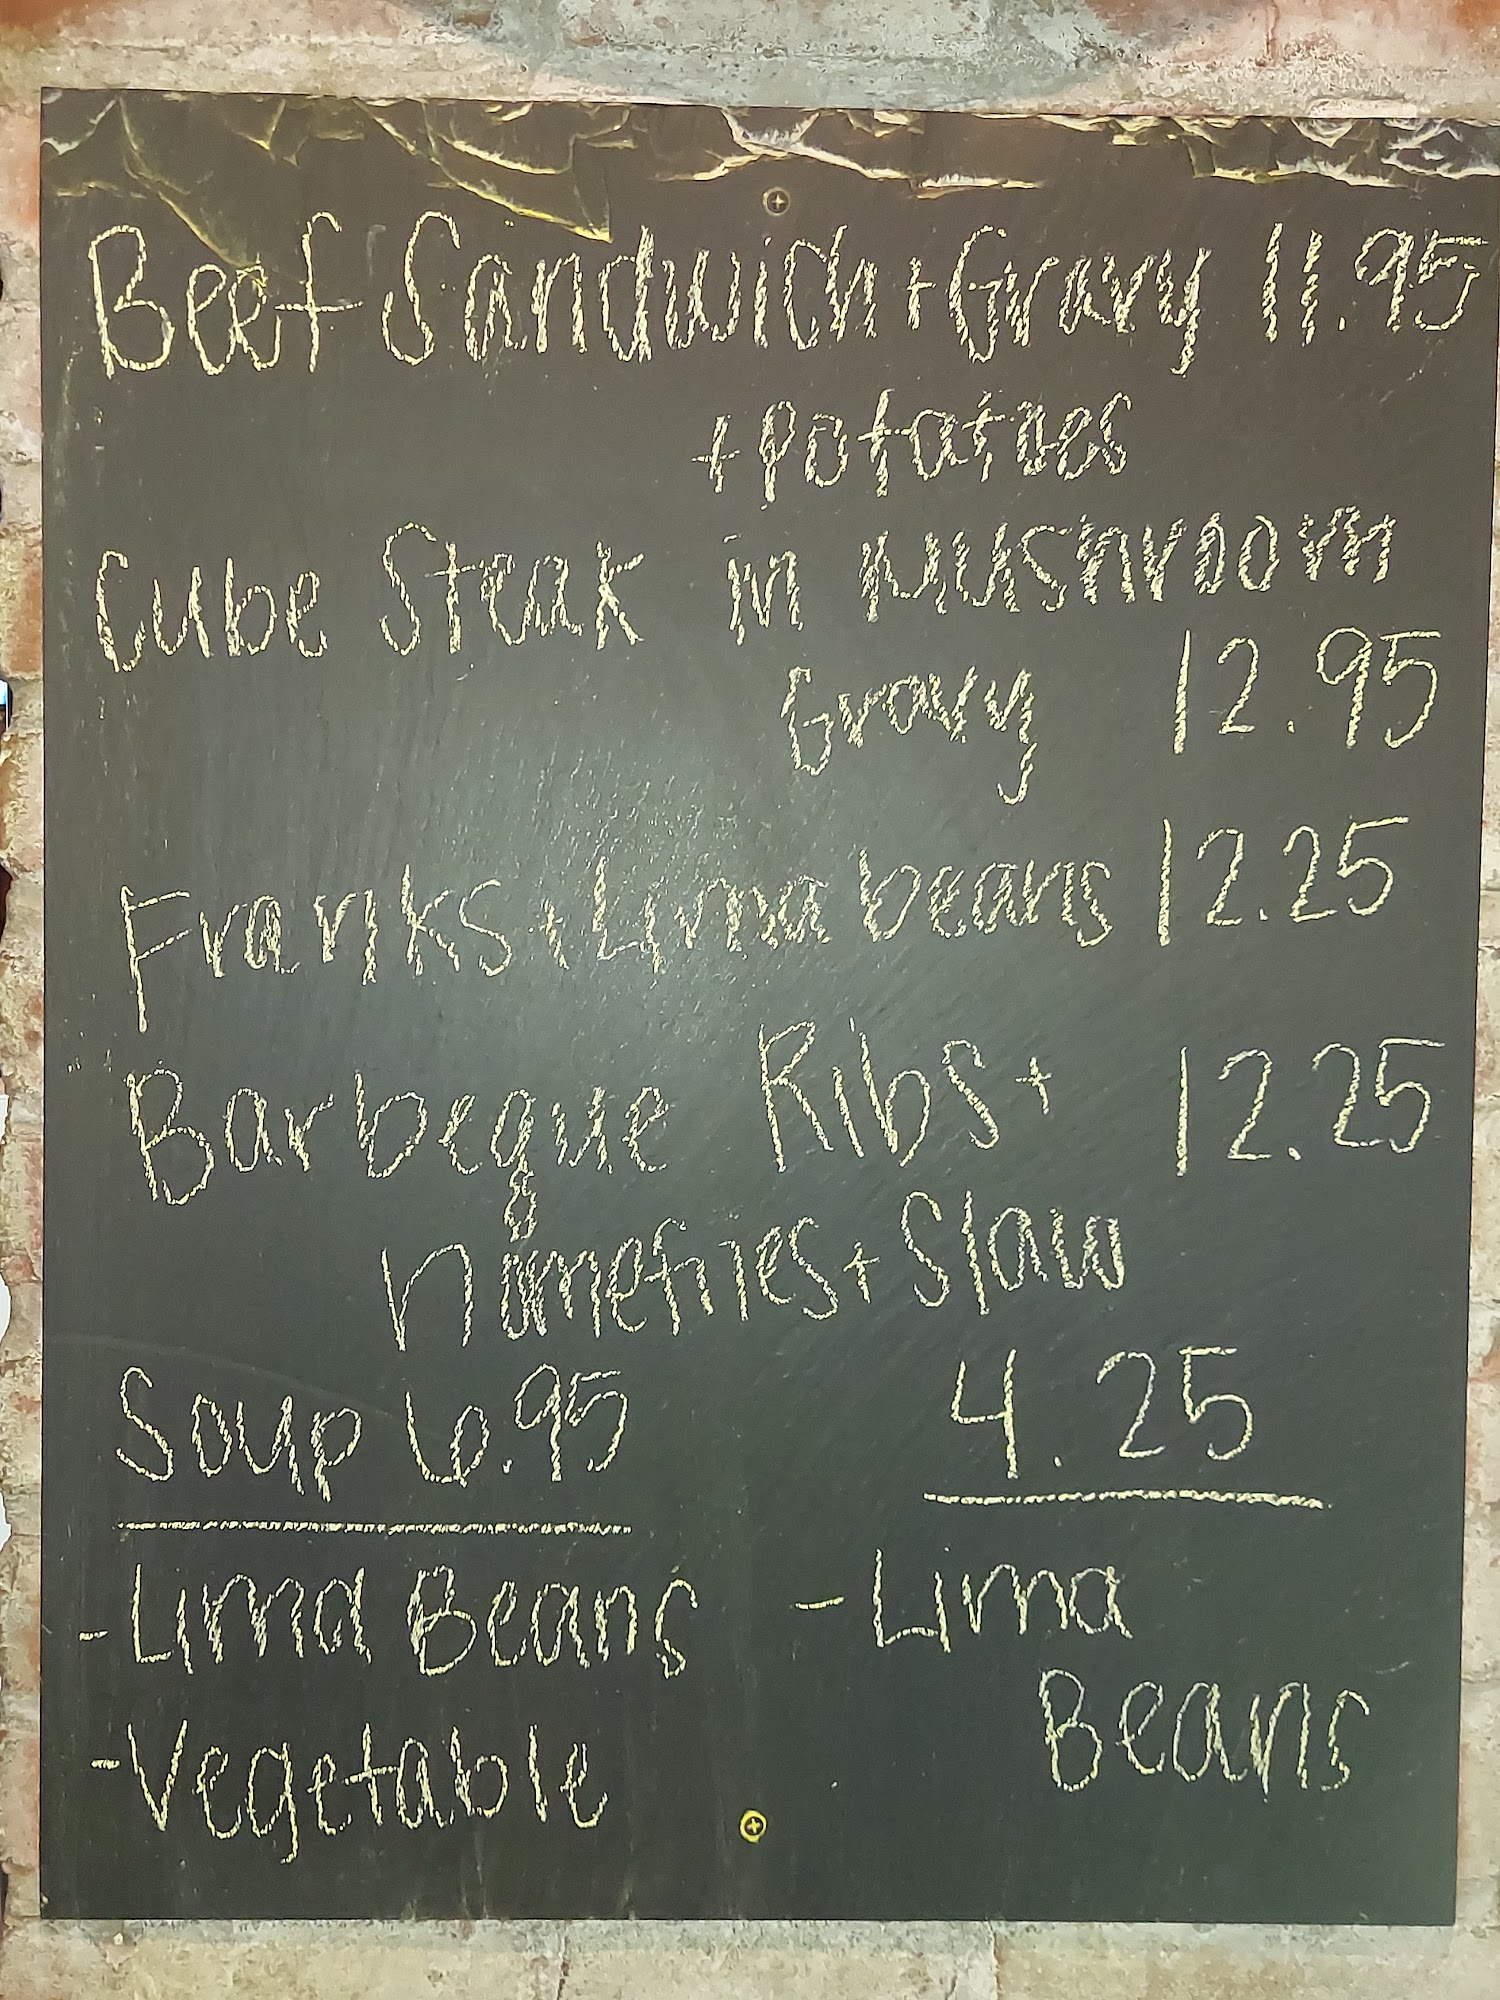 Beef Sandwich + Gravy 11.95
+ potatoes
Cube Steak in Mushroom
Gravy 12.95
Franks + Lima beans 12.25
Barbeque Ribs + 12.25
homefries + Slaw
Soup 6.95
- Lima Beans
- Vegetable
4.25
- Lima
Beans